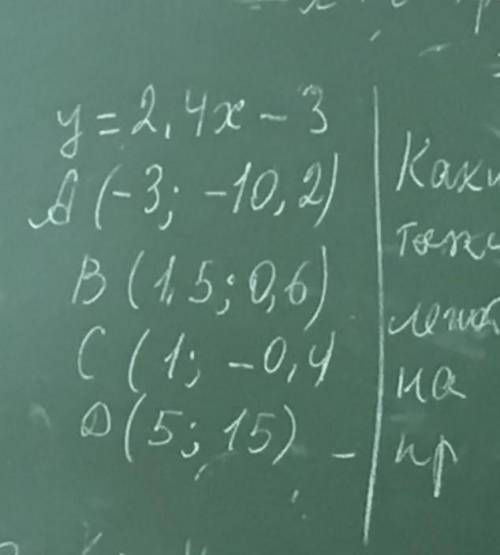 y = 2,4x - 3
A (-3; -10,2)
B (1,5; 0,6)
C (1; -0,4
D (5; 15) -
Каки
точки
лежат
на
пр